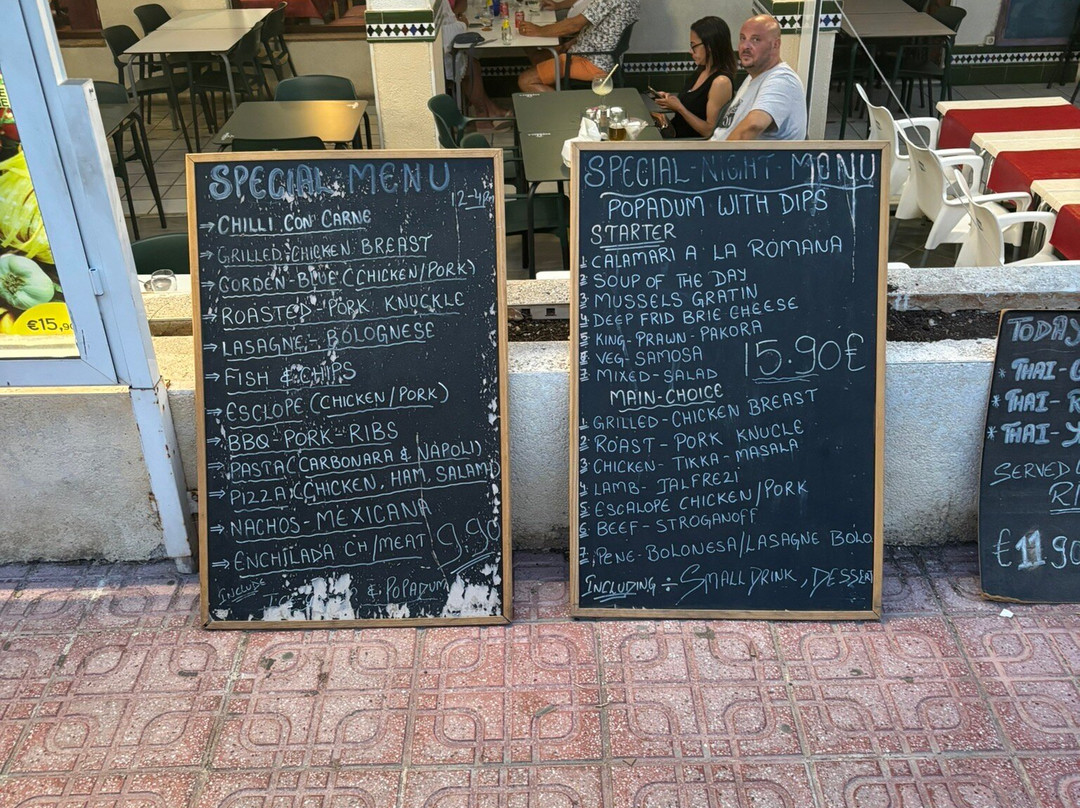 SPECIAL MENU
12-4PM
⇒ CHILLI CON CARNE
⇒ GRILLED CHICKEN BREAST
⇒ CORDEN-BLUE (CHICKEN/PORK)
⇒ ROASTED-PORK KNUCKLE
⇒ LASAGNE - BOLOGNESE
⇒ FISH & CHIPS
⇒ ESCLOPE (CHICKEN/PORK)
⇒ BBQ-PORK-RIBS
⇒ PASTA (CARBONARA & NAPOLI)
⇒ PIZZA (CHICKEN, HAM, SALAMI)
⇒ NACHOS-MEXICANA
⇒ ENCHILADA CH/MEAT
9.90
INCLUDE
& POPADUM
SPECIAL-NIGHT MENU
POPADUM WITH DIPS
STARTER
1 CALAMARI A LA ROMANA
2 SOUP OF THE DAY
3 MUSSELS GRATIN
4 DEEP FRID BRIE CHEESE
5 KING-PRAWN-PAKORA
6 VEG-SAMOSA
7 MIXED-SALAD
15.90€
MAIN-CHOICE
1 GRILLED-CHICKEN BREAST
2 ROAST-PORK KNUCLE
3 CHICKEN-TIKKA-MASALA
4 LAMB-JALFREZI
5 ESCALOPE CHICKEN/PORK
6 BEEF-STROGANOFF
7 PENE-BOLONESA/LASAGNE BOLO
INCLUDING ÷ SMALL DRINK, DESSER
TODAY
* THAI-
* THAI-R
* THAI-
SERVED
RI
€11.90
€15,90